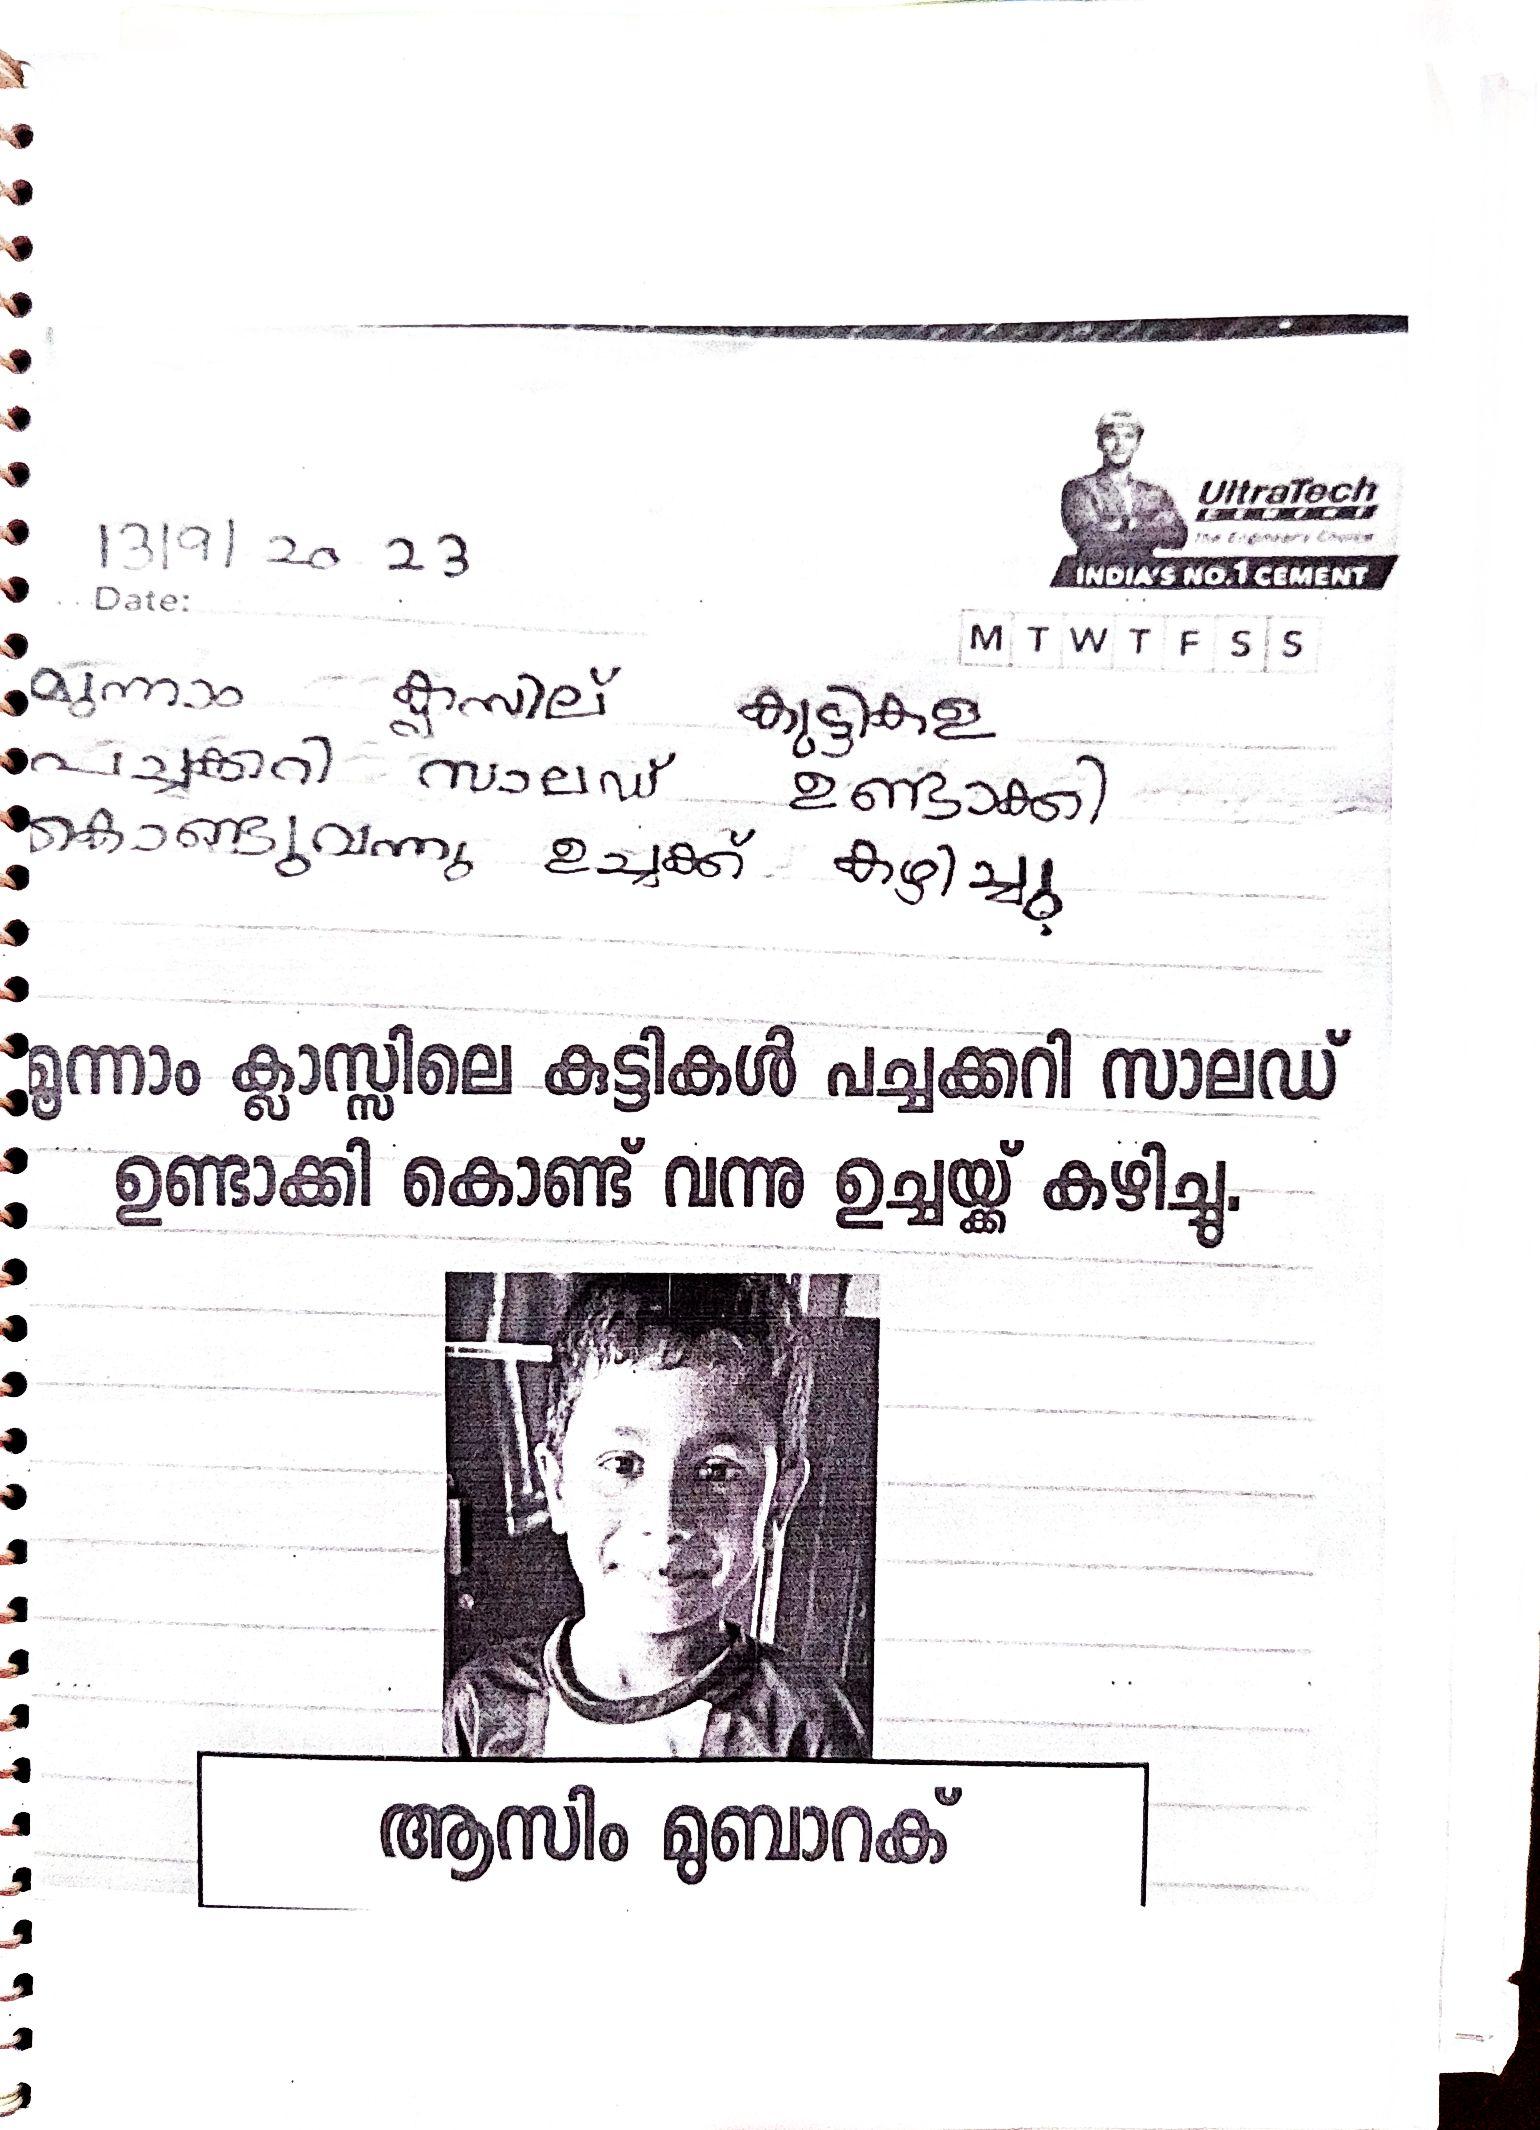 UltraTech
The Engineer's Choice
INDIA'S NO.1 CEMENT
13/9/2023
Date:
M T W T F S S
മുന്നാം ക്ലാസില് കുട്ടികള
പച്ചക്കറി സാലഡ് ഉണ്ടാക്കി
കൊണ്ടുവന്നു ഉച്ചക്ക് കഴിച്ചു
മൂന്നാം ക്ലാസ്സിലെ കുട്ടികൾ പച്ചക്കറി സാലഡ്
ഉണ്ടാക്കി കൊണ്ട് വന്നു ഉച്ചയ്ക്ക് കഴിച്ചു.
ആസിം മുബാറക്